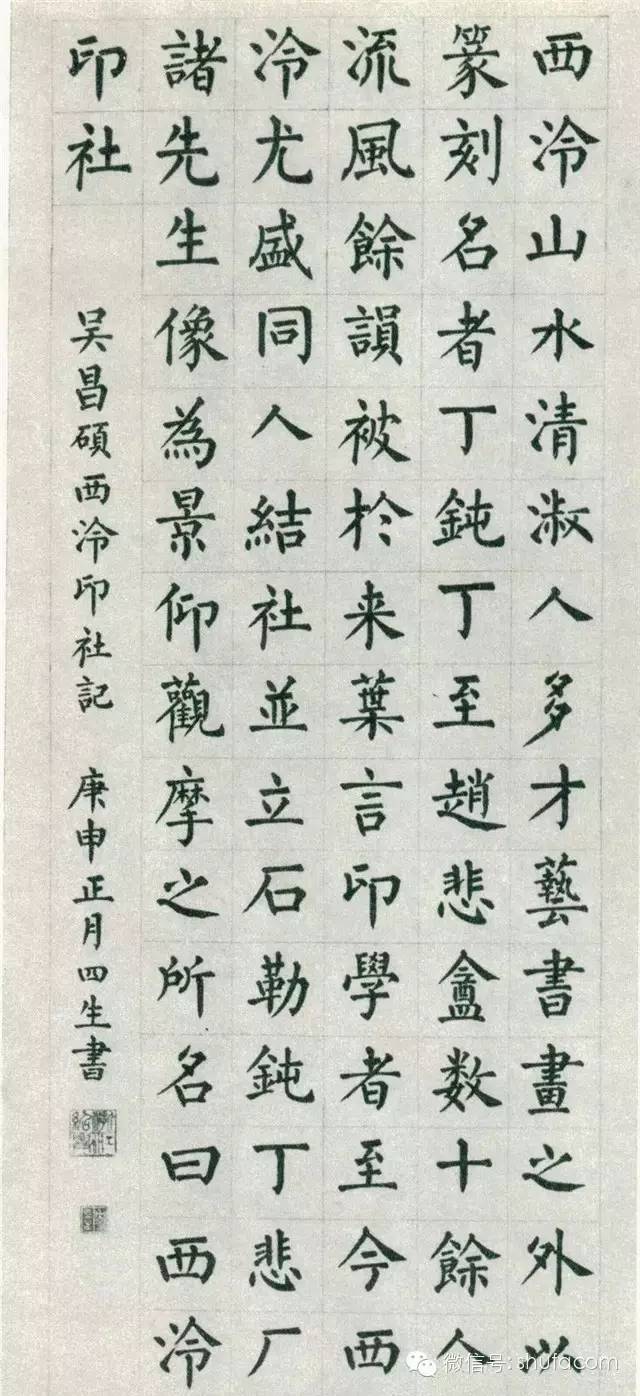 西泠山水清淑人多才藝書畫之外以
篆刻名者丁鈍丁至趙悲盦数十餘人
流風餘韻被於来葉言印學者至今西
泠尤盛同人結社並立石勒鈍丁悲厂
諸先生像為景仰觀摩之所名曰西泠
印社
吴昌碩西泠印社記 庚申正月四生書
微信号: shufacom